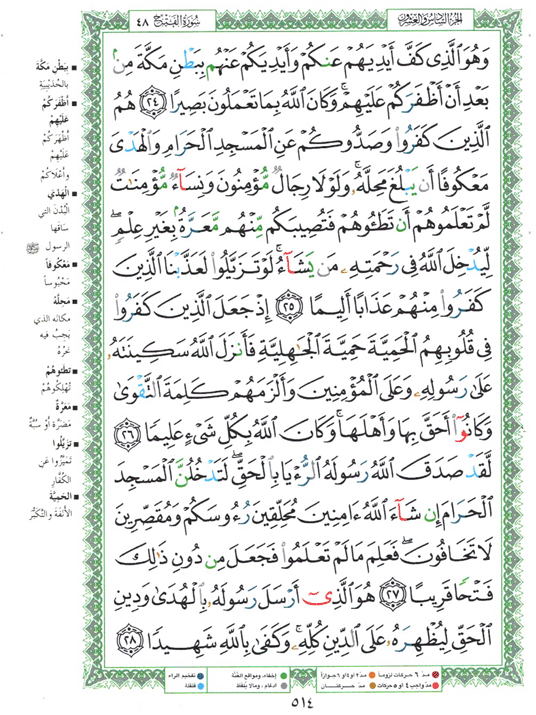 الجزء السادس والعشرون
سورة الفتح ٤٨
وَهُوَ ٱلَّذِى كَفَّ أَيْدِيَهُمْ عَنكُمْ وَأَيْدِيَكُمْ عَنْهُم بِبَطْنِ مَكَّةَ مِنۢ
بَعْدِ أَنْ أَظْفَرَكُمْ عَلَيْهِمْ ۚ وَكَانَ ٱللَّهُ بِمَا تَعْمَلُونَ بَصِيرًا ٢٤ هُمُ
ٱلَّذِينَ كَفَرُوا۟ وَصَدُّوكُمْ عَنِ ٱلْمَسْجِدِ ٱلْحَرَامِ وَٱلْهَدْىَ
مَعْكُوفًا أَن يَبْلُغَ مَحِلَّهُۥ ۚ وَلَوْلَا رِجَالٌ مُّؤْمِنُونَ وَنِسَآءٌ مُّؤْمِنَـٰتٌ
لَّمْ تَعْلَمُوهُمْ أَن تَطَـُٔوهُمْ فَتُصِيبَكُم مِّنْهُم مَّعَرَّةٌۢ بِغَيْرِ عِلْمٍ ۖ
لِّيُدْخِلَ ٱللَّهُ فِى رَحْمَتِهِۦ مَن يَشَآءُ ۚ لَوْ تَزَيَّلُوا۟ لَعَذَّبْنَا ٱلَّذِينَ
كَفَرُوا۟ مِنْهُمْ عَذَابًا أَلِيمًا ٢٥ إِذْ جَعَلَ ٱلَّذِينَ كَفَرُوا۟
فِى قُلُوبِهِمُ ٱلْحَمِيَّةَ حَمِيَّةَ ٱلْجَـٰهِلِيَّةِ فَأَنزَلَ ٱللَّهُ سَكِينَتَهُۥ
عَلَىٰ رَسُولِهِۦ وَعَلَى ٱلْمُؤْمِنِينَ وَأَلْزَمَهُمْ كَلِمَةَ ٱلتَّقْوَىٰ
وَكَانُوٓا۟ أَحَقَّ بِهَا وَأَهْلَهَا ۚ وَكَانَ ٱللَّهُ بِكُلِّ شَىْءٍ عَلِيمًا ٢٦
لَّقَدْ صَدَقَ ٱللَّهُ رَسُولَهُ ٱلرُّءْيَا بِٱلْحَقِّ ۖ لَتَدْخُلُنَّ ٱلْمَسْجِدَ
ٱلْحَرَامَ إِن شَآءَ ٱللَّهُ ءَامِنِينَ مُحَلِّقِينَ رُءُوسَكُمْ وَمُقَصِّرِينَ
لَا تَخَافُونَ ۖ فَعَلِمَ مَا لَمْ تَعْلَمُوا۟ فَجَعَلَ مِن دُونِ ذَٰلِكَ
فَتْحًا قَرِيبًا ٢٧ هُوَ ٱلَّذِىٓ أَرْسَلَ رَسُولَهُۥ بِٱلْهُدَىٰ وَدِينِ
ٱلْحَقِّ لِيُظْهِرَهُۥ عَلَى ٱلدِّينِ كُلِّهِۦ ۚ وَكَفَىٰ بِٱللَّهِ شَهِيدًا ٢٨
بِبَطْنِ مَكَّةَ
بالحُدَيْبِيَة
أظْفَرَكُمْ
عَلَيْهِمْ
أظْهَرَكُمْ
عَلَيْهِم
وأعْلَاكُمْ
الهَدْيَ
البُدْنَ التي
ساقها
الرسول ﷺ
مَعْكُوفاً
مَحْبُوساً
مَحِلَّهُ
مكانه الذي
يجبُ فيه
نَحْرُهُ
تَطَئُوهُمْ
تُهْلِكُوهُمْ
مَعَرَّةٌ
مَضَرَّةٌ أوْ سُبَّةٌ
تَزَيَّلُوا
تَمَيَّزُوا عَنِ
الكُفَّار
الحَمِيَّةَ
الأَنَفَةَ والتَّكَبُّرَ
مدّ ٦ حركات لزوماً مدّ ٢ أو ٤ أو ٦ جوازاً
مدّ واجب ٤ أو ٥ حركات مدّ حركتان
إخفاء، ومواقع الغُنَّة
ادغام، وما لا يُلفَظ
تفخيم الراء
قلقلة
٥١٤